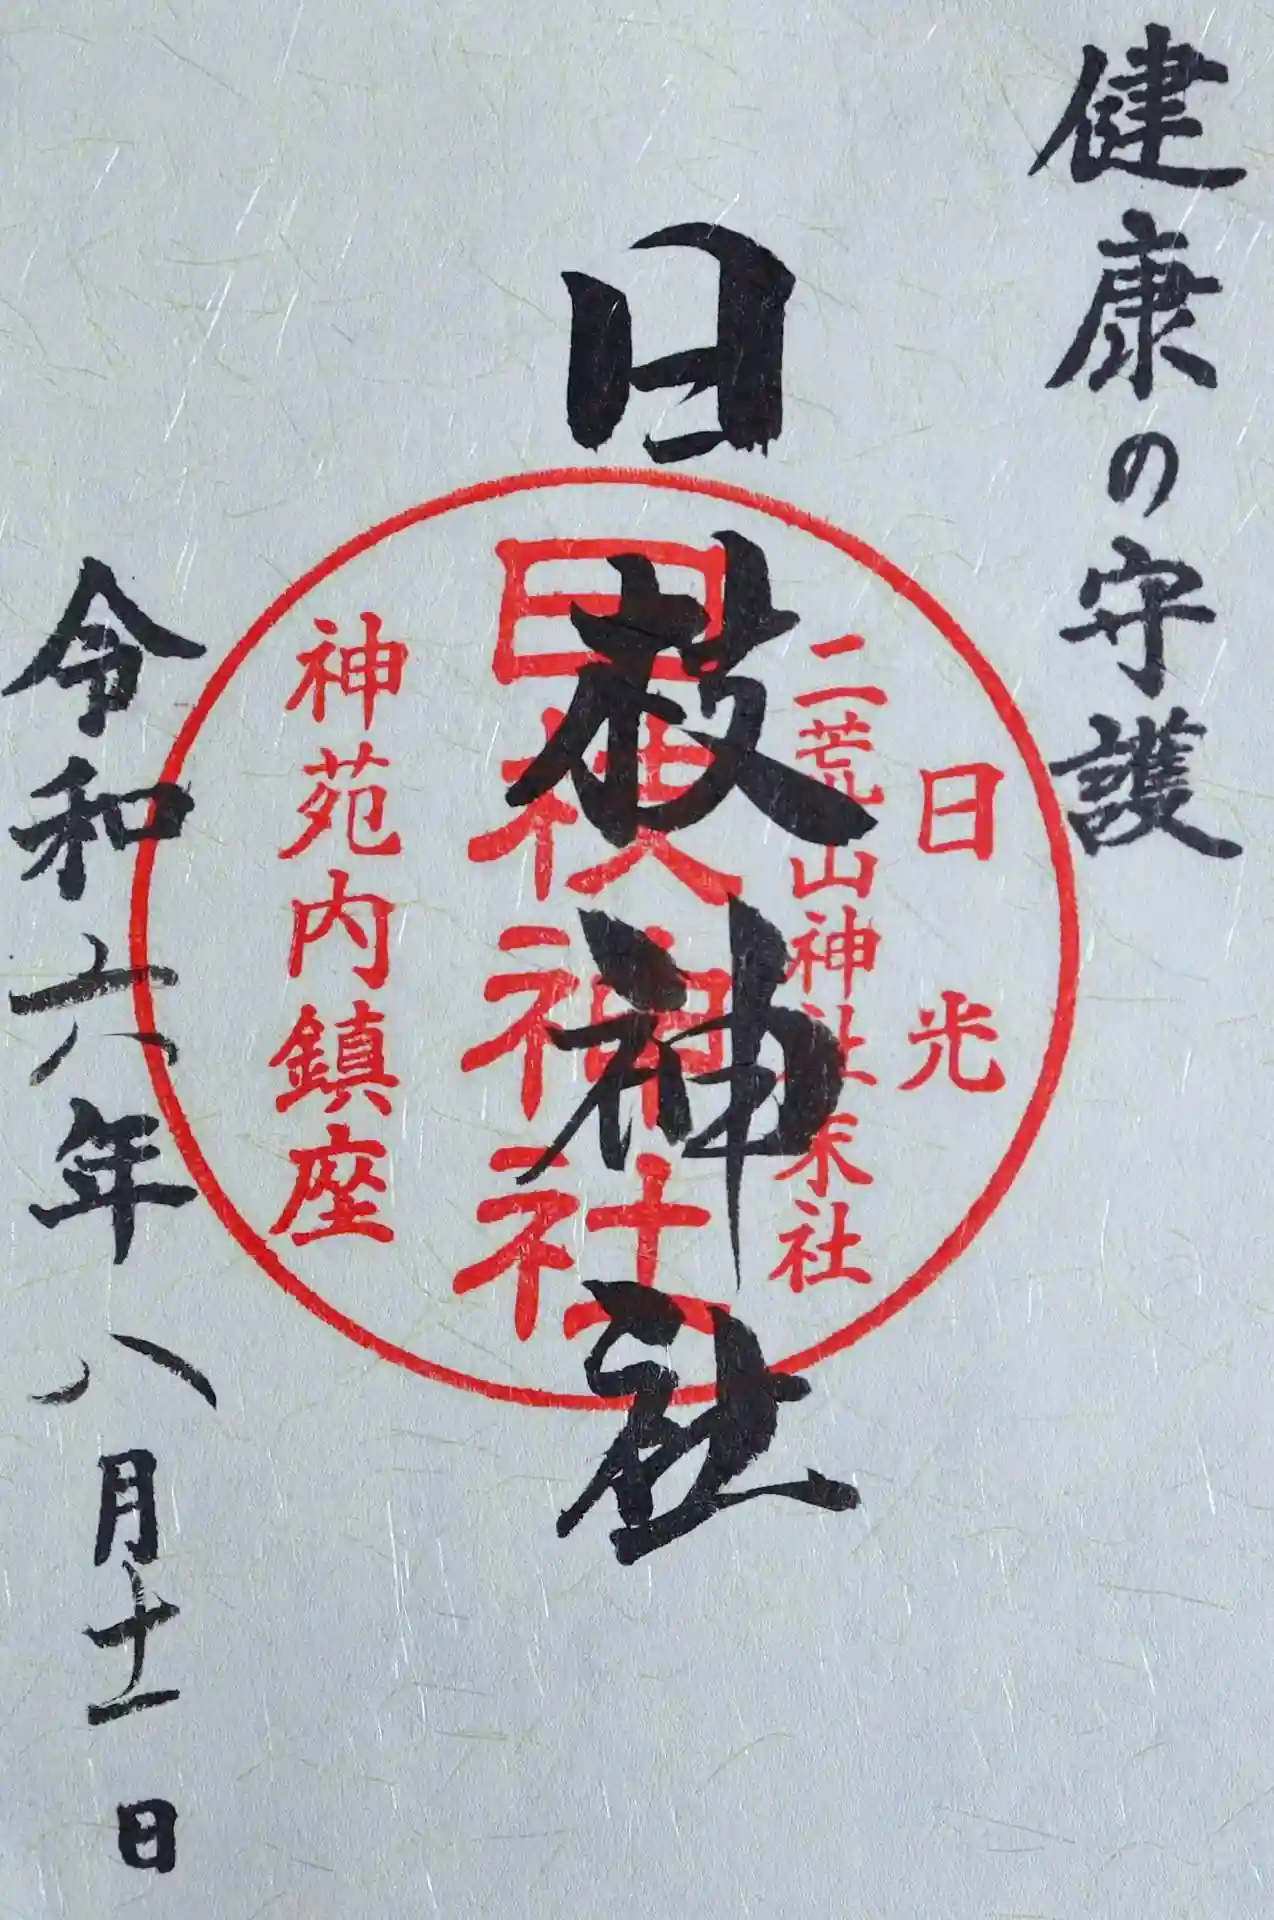 健康の守護
日光
二荒山神社末社
日枝神社
日枝神社
神苑内鎮座
令和六年八月十一日